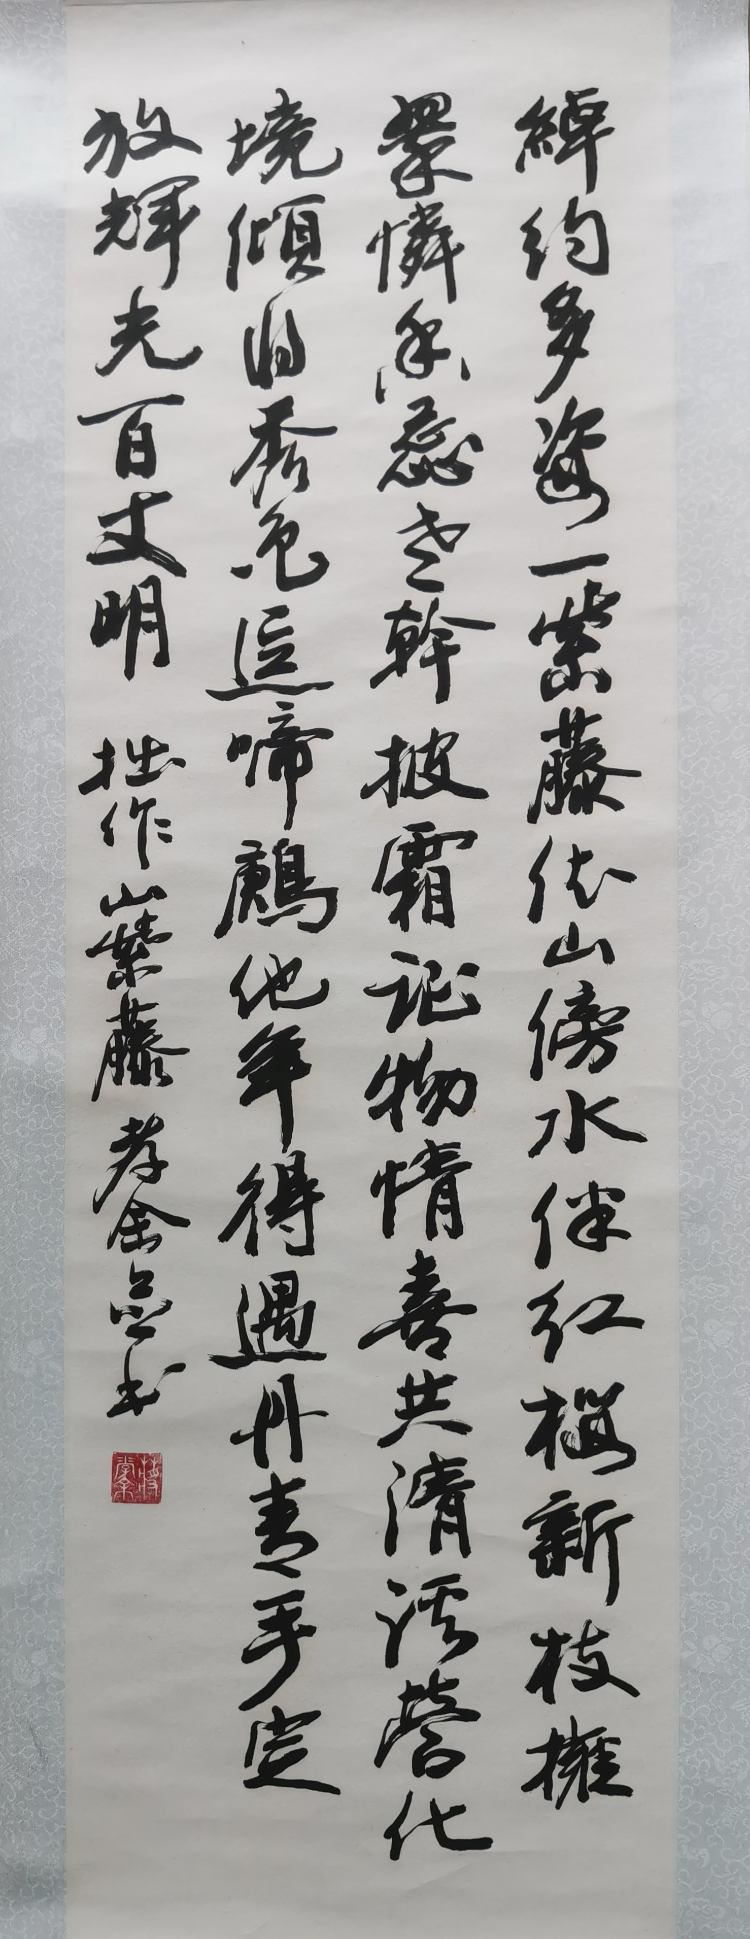 綽約多姿一紫藤依山傍水伴紅櫻新枝擁
翠憐香蕊老幹披霜证物情喜共清營化
境傾将秀色逗啼鶊他年得遇丹青手定
放輝光百丈明
拙作山紫藤 孝金书